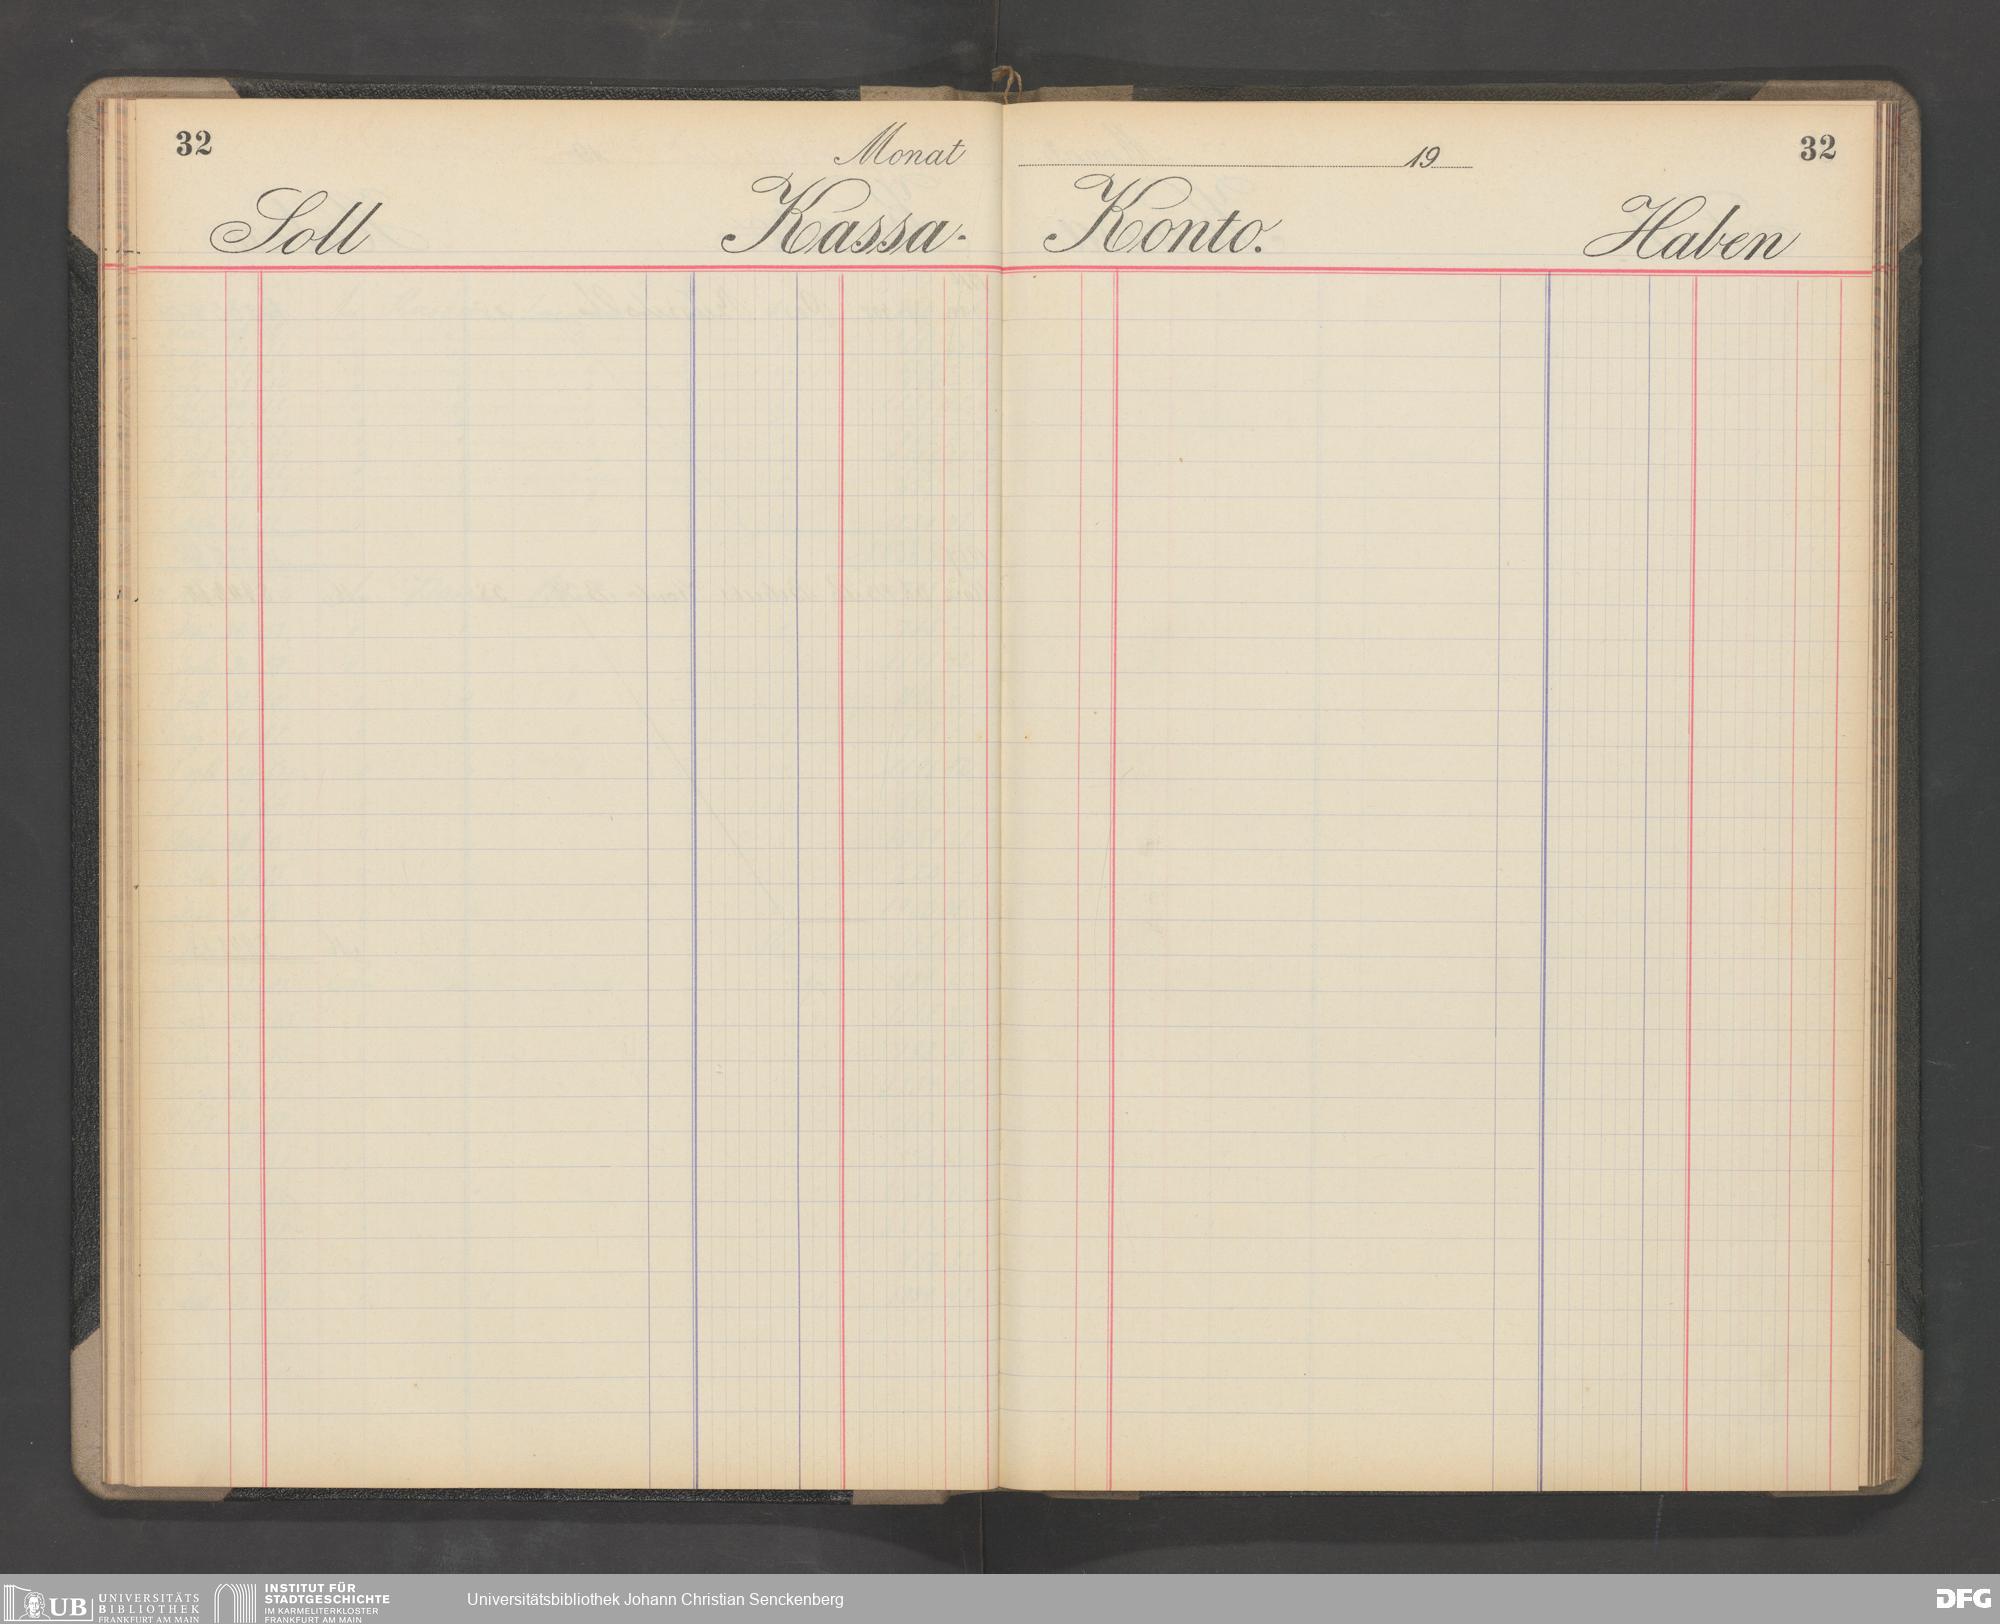 32 Monat 19 32
Soll Kassa- Konto. Haben
UB UNIVERSITÄTS
BIBLIOTHEK
FRANKFURT AM MAIN
INSTITUT FÜR
STADTGESCHICHTE
IM KARMELITERKLOSTER
FRANKFURT AM MAIN
Universitätsbibliothek Johann Christian Senckenberg
DFG